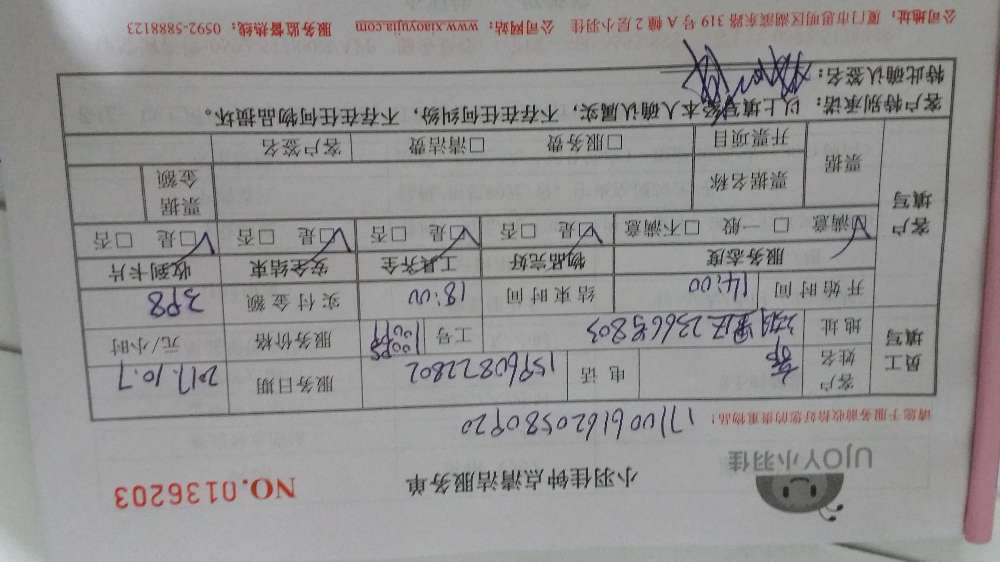 UJOY小羽佳
小羽佳钟点清洁服务单
NO.0136203
请您于服务前收拾好您的贵重物品!
1710061620580920
员工填写
客户姓名
电话
15960822802
服务日期
2017.10.7
地址
2366号803
工号
服务价格
元/小时
开始时间
14:00
结束时间
18:00
实付金额
398
客户填写
服务态度
物品完好
工具齐全
安全结束
收到卡片
☑满意 □一般 □不满意
☑是 □否
☑是 □否
☑是 □否
☑是 □否
票据
票据名称
票据金额
开票项目
□服务费 □清洁费
客户签名
客户特别承诺:以上填写经本人确认属实,不存在任何纠纷,不存在任何物品损坏。
特此确认签名:
公司地址:厦门市思明区湖滨东路319号A幢2层小羽佳 公司网站:www.xiaoyujia.com 服务监督热线:0592-5888123